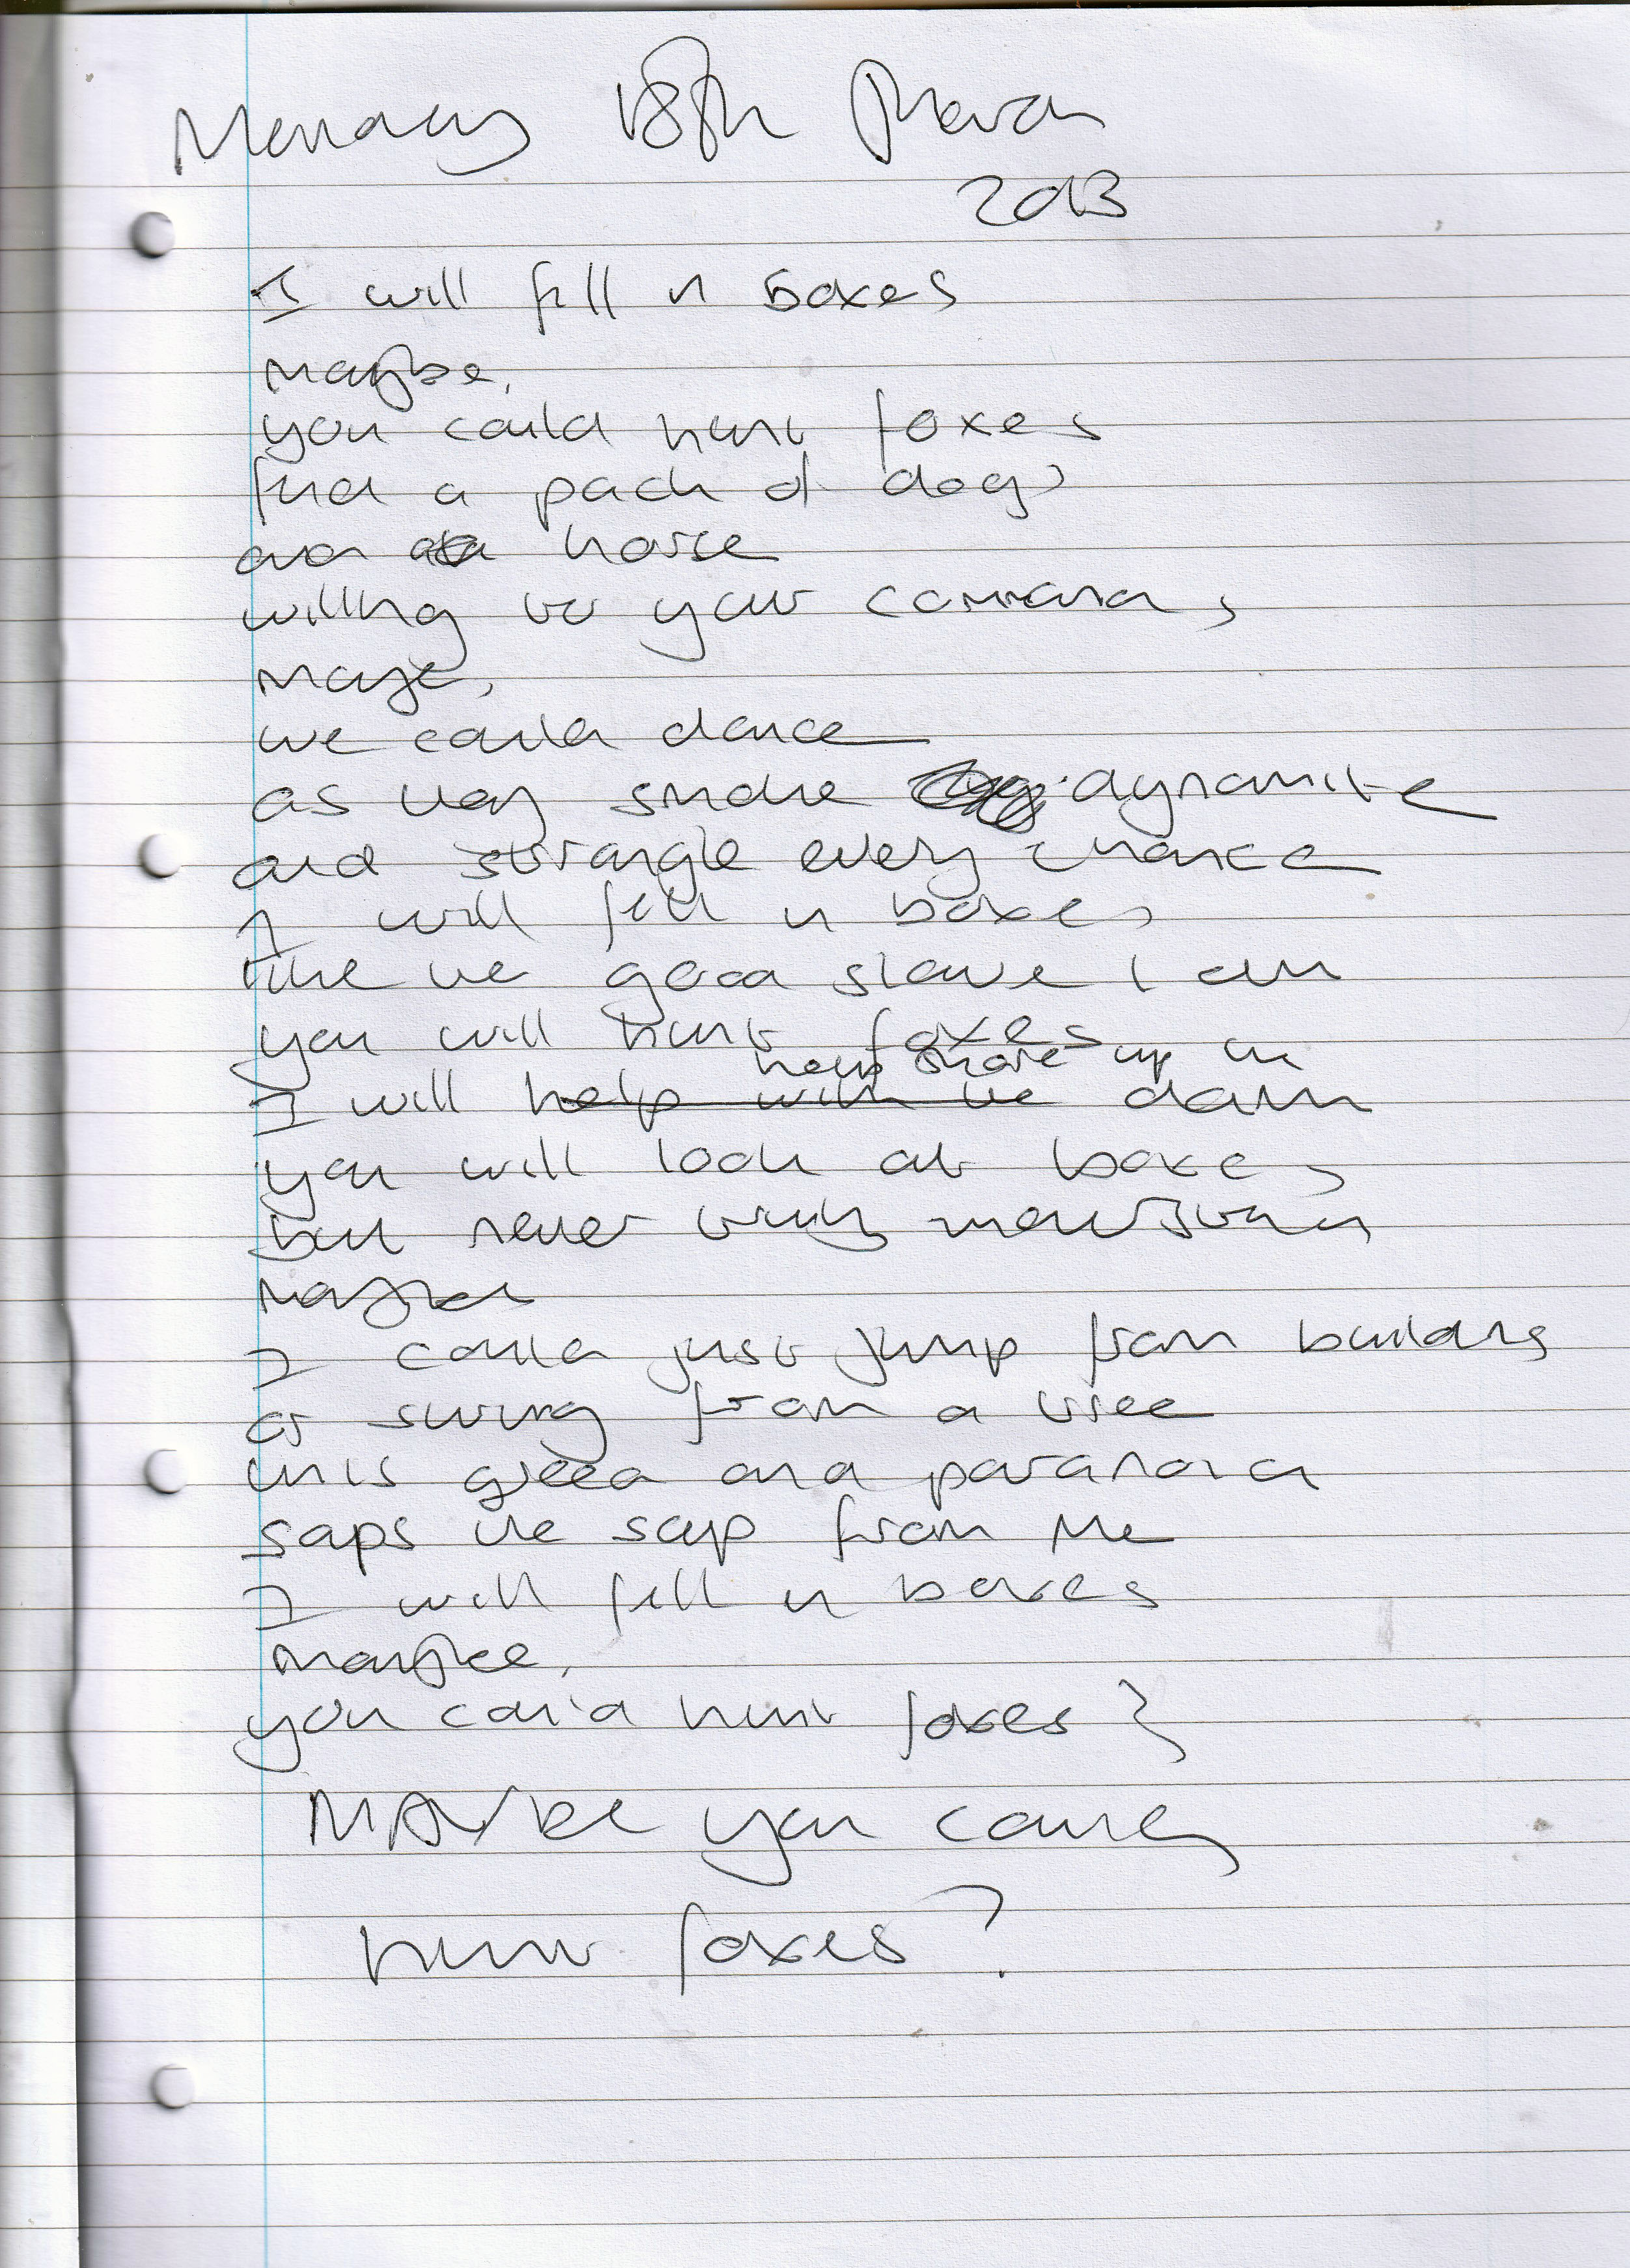 Monday 18th March
2013
I will fill in boxes
maybe,
you could hunt foxes
find a pack of dogs
and a horse
willing to your command,
maybe,
we could dance
as they smoke dynamite
and strangle every chance
I will fill in boxes
like the good slave I am
you will hunt foxes
help shore up the
I will help with the dam
you will look at boxes
but never truly understand
maybe
I could just jump from buildings
or swing from a tree
this greed and paranoia
saps the sap from me
I will fill in boxes
maybe,
you could hunt foxes?
MAYbe you could,
hunt foxes?